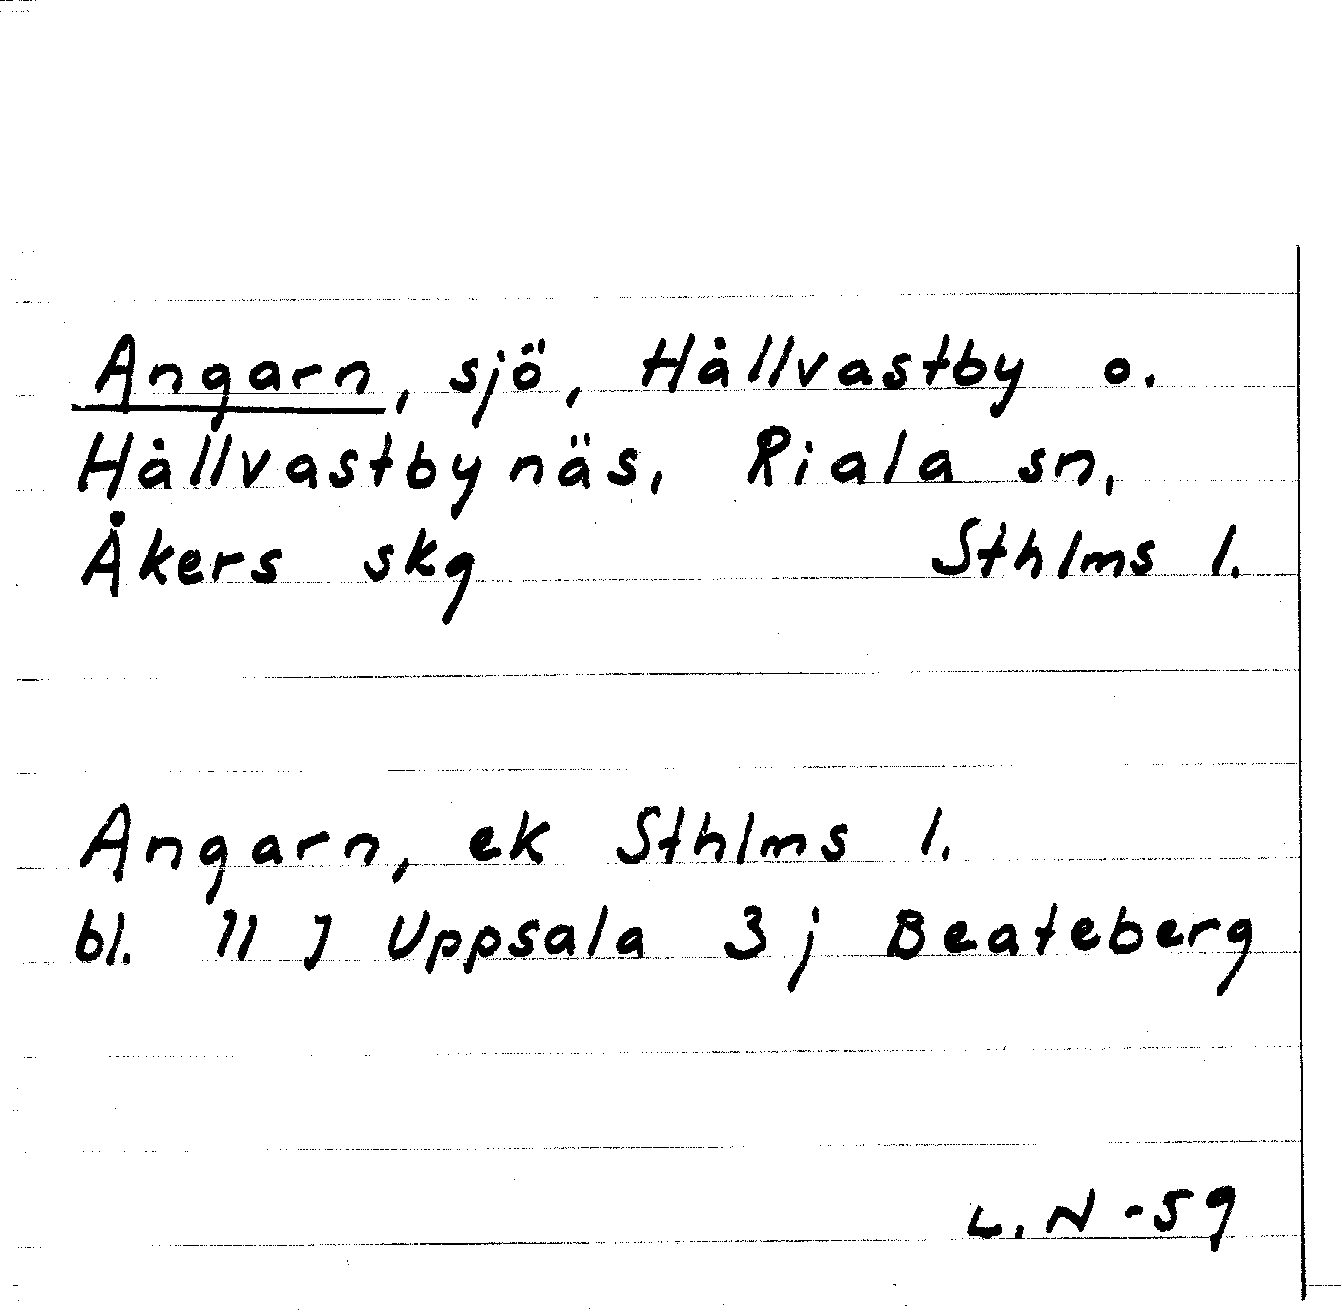 Angarn, sjö, Hållvastby o.
Hållvastbynäs, Riala sn,
Åkers skg Sthlms l.
Angarn, ek Sthlms l.
bl. 11 J Uppsala 3 j Beateberg
L.N -59